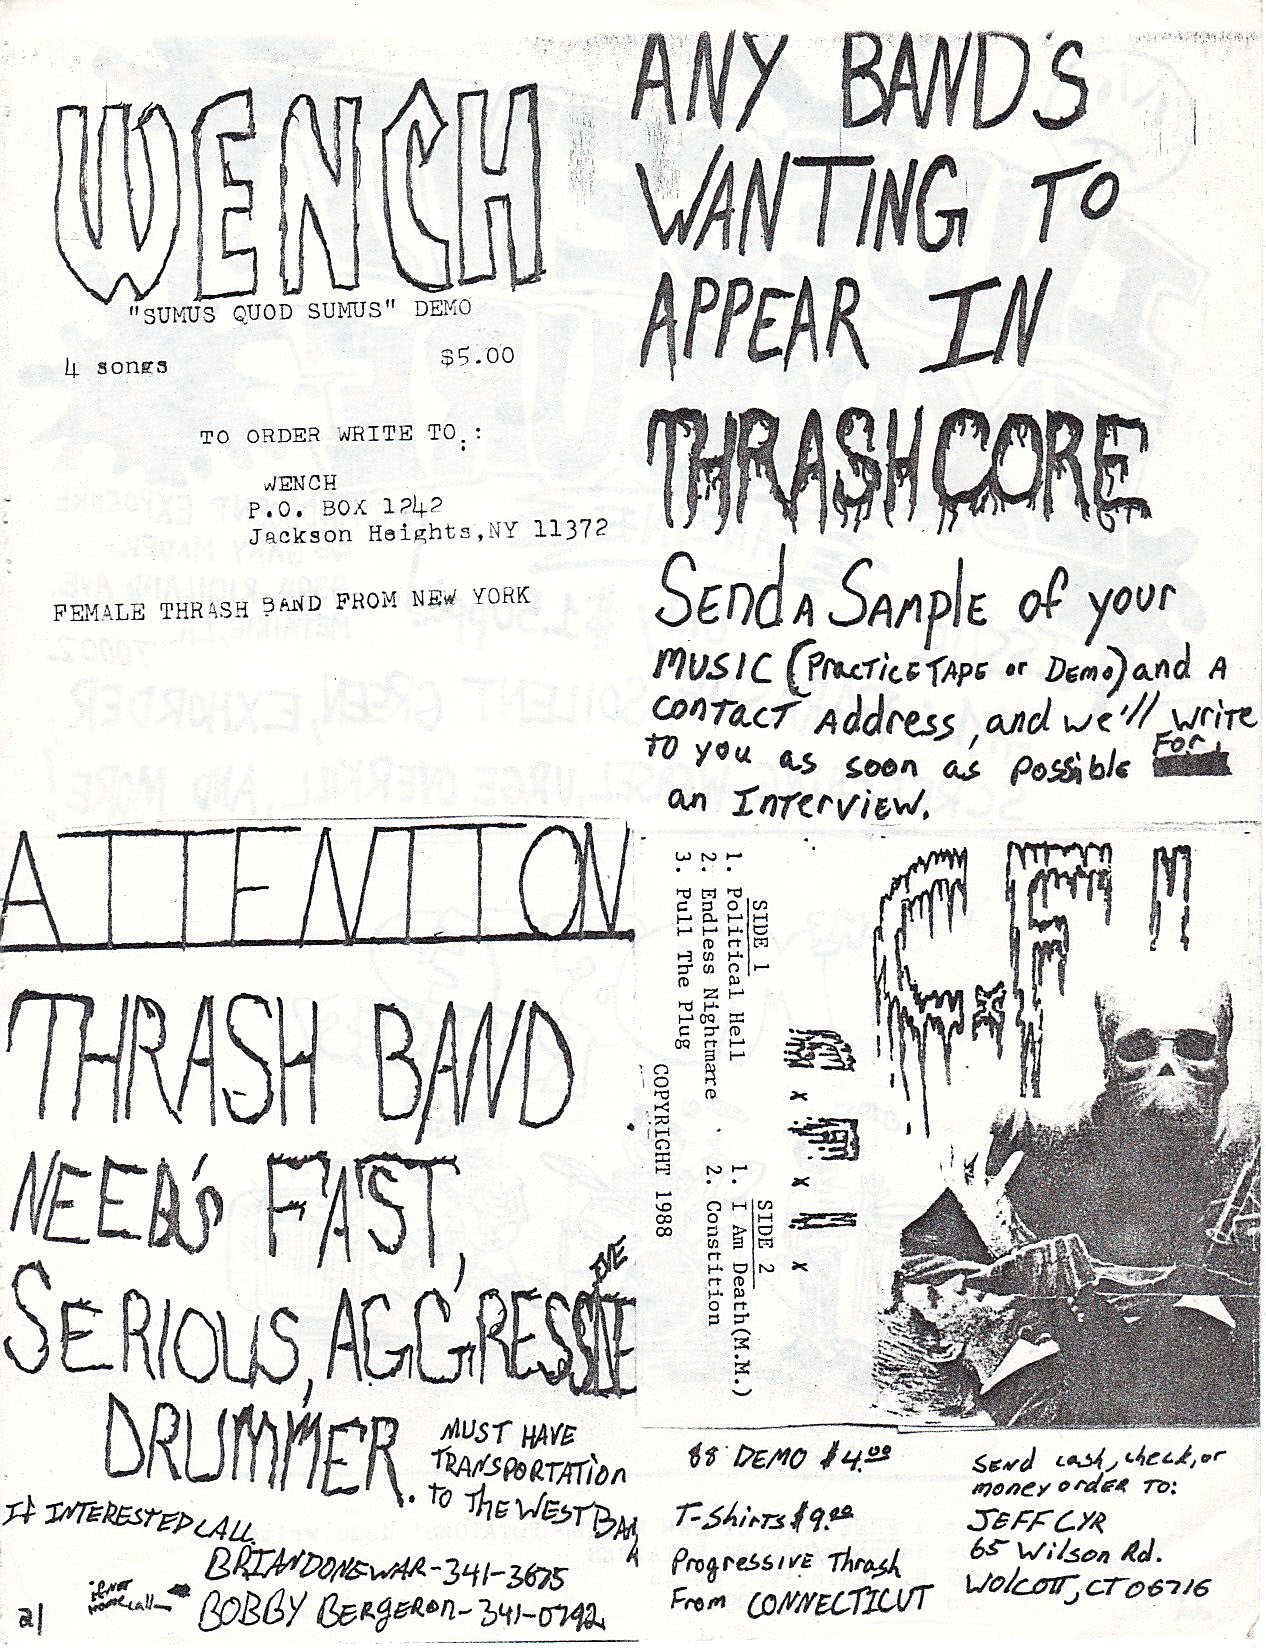 WENCH
"SUMUS QUOD SUMUS" DEMO
4 songs $5.00
TO ORDER WRITE TO.:
WENCH
P.O. BOX 1242
Jackson Heights,NY 11372
FEMALE THRASH BAND FROM NEW YORK
ANY BAND'S
WANTING TO
APPEAR IN
THRASHCORE
Send A Sample of your
MUSIC (PracticE TAPE or DEMO) and A
contact Address, and we'll write
to you as soon as possible For
an Interview.
ATTENTION
THRASH BAND
NEED'S FAST,
SERIOUS, AGGRESSIVE
IVE
DRUMMER.
MUST HAVE
TRANSPORTATION
TO THE WEST BANK
If INTERESTED CALL
BRIAN DONEWAR-341-3675
if not home call
BOBBY BERGERON-341-0792
21
SIDE 1
1. Political Hell
2. Endless Nightmare
3. Pull The Plug
SIDE 2
1. I Am Death(M.M.)
2. Constitition
COPYRIGHT 1988
88 DEMO $4.00
T-Shirts $9.00
Progressive Thrash
From CONNECTICUT
Send cash, check, or
money order to:
JEFF CYR
65 Wilson Rd.
Wolcott, CT 06716